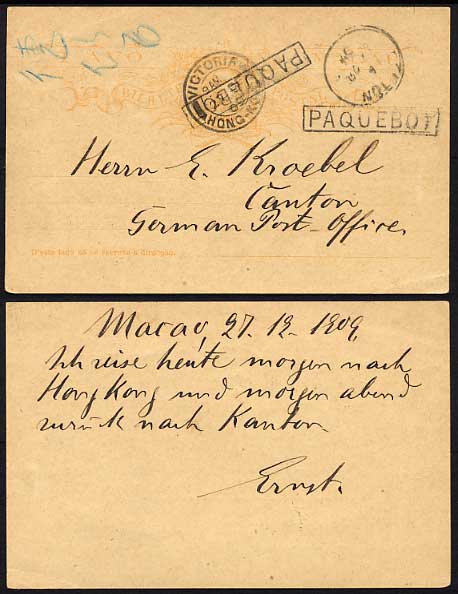 VICTORIA
HONG-KONG
PAQUEBOT
PAQUEBOT
BILHETE
Herrn E. Kroebel
Canton
German Post-Office.
D'este lado só se escreve a direcção.
Macao, 27. 12. 1909
Ich reise heute morgen nach
Hong Kong und morgen abend
zurück nach Kanton
Ernst.